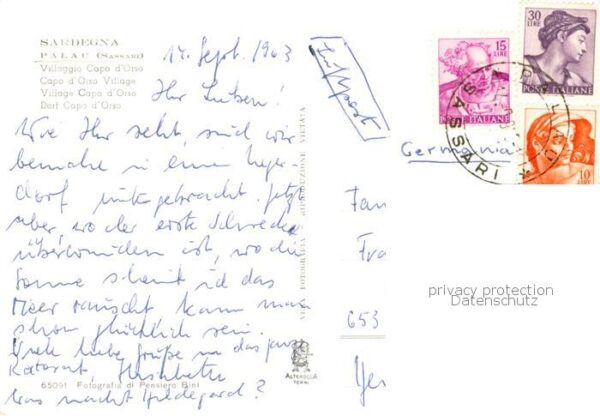 SARDEGNA
PALAU (SASSARI)
Villaggio Capo d'Orso
Capo d'Orso Village
Village Capo d'Orso
Dorf Capo d'Orso
17. Sept. 1963
Luftpost
Ihr Lieben!
Wie Ihr seht, sind wir
beinahe in einem Neger-
dorf untergebracht. Jetzt
aber, wo der erste Schrecken
überwunden ist, wo die
Sonne scheint und das
Meer rauscht kann man
schon glücklich sein.
Viele liebe Grüße an das ganze
Was macht Hildegard?
65091 Fotografia di Pensiero Bini
VERA FOTOGRAFIA - RIPRODUZIONE VIETATA
ALTEROCCA
TERNI
15 LIRE
POSTE ITALIANE
30 LIRE
POSTE ITALIANE
10 LIRE
PALAU
SASSARI
Germania
Fam
Fra
653
privacy protection
Datenschutz